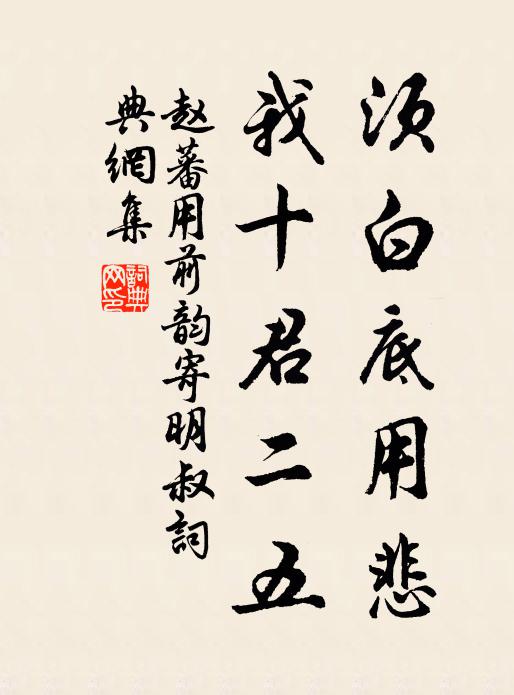 须白底用悲
我十君二五
赵蕃用前韵寄明叔詞
典網集
詞典網印